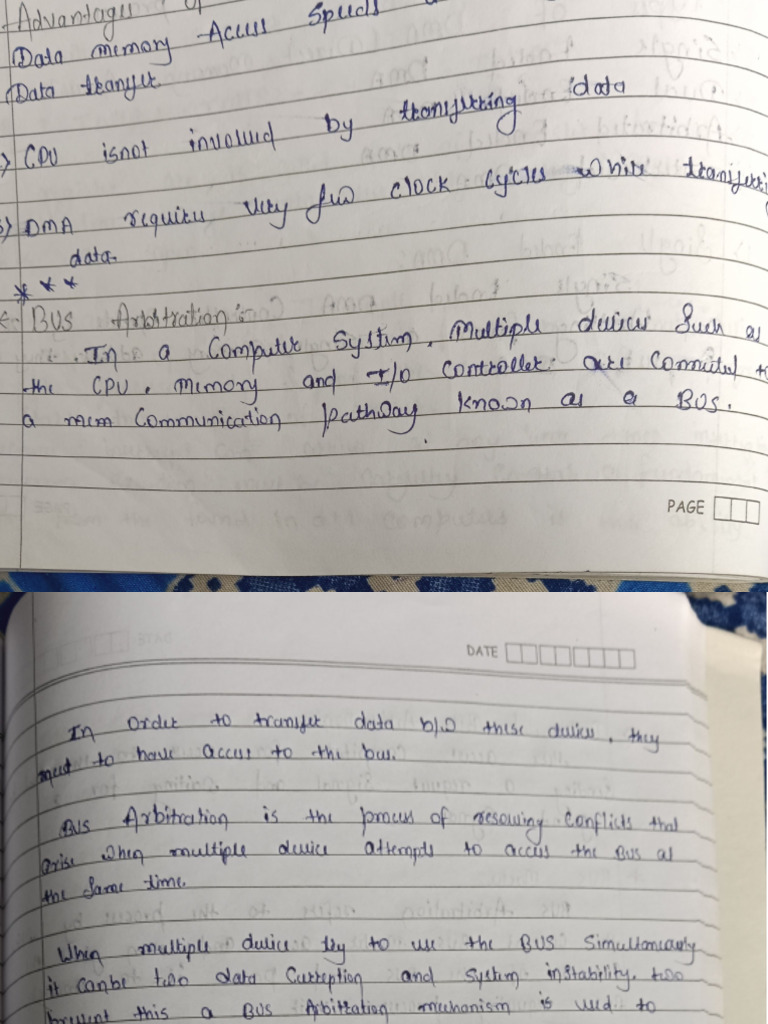 Advantages of
Data memory Access Speeds
Data transfer
) CPU isnot involved by transferring data
3) DMA requires very few clock cycles while transferri
data.
* * *
BUS Arbitration :-
In a Computer System, Multiple devices Such as
the CPU, Memory and I/O Controller are Connected to
a mem Communication pathway known as a BUS.
PAGE
DATE
In Order to transfer data b/w these devices, they
need to have access to the bus.
BUS Arbitration is the process of resolving Conflicts that
arise when multiple device attempts to access the BUS at
the Same time.
When multiple device try to use the BUS Simultaneously
it canbe two data Curreption and System instability. two
prevent this a BUS Arbitration mechanism is used to